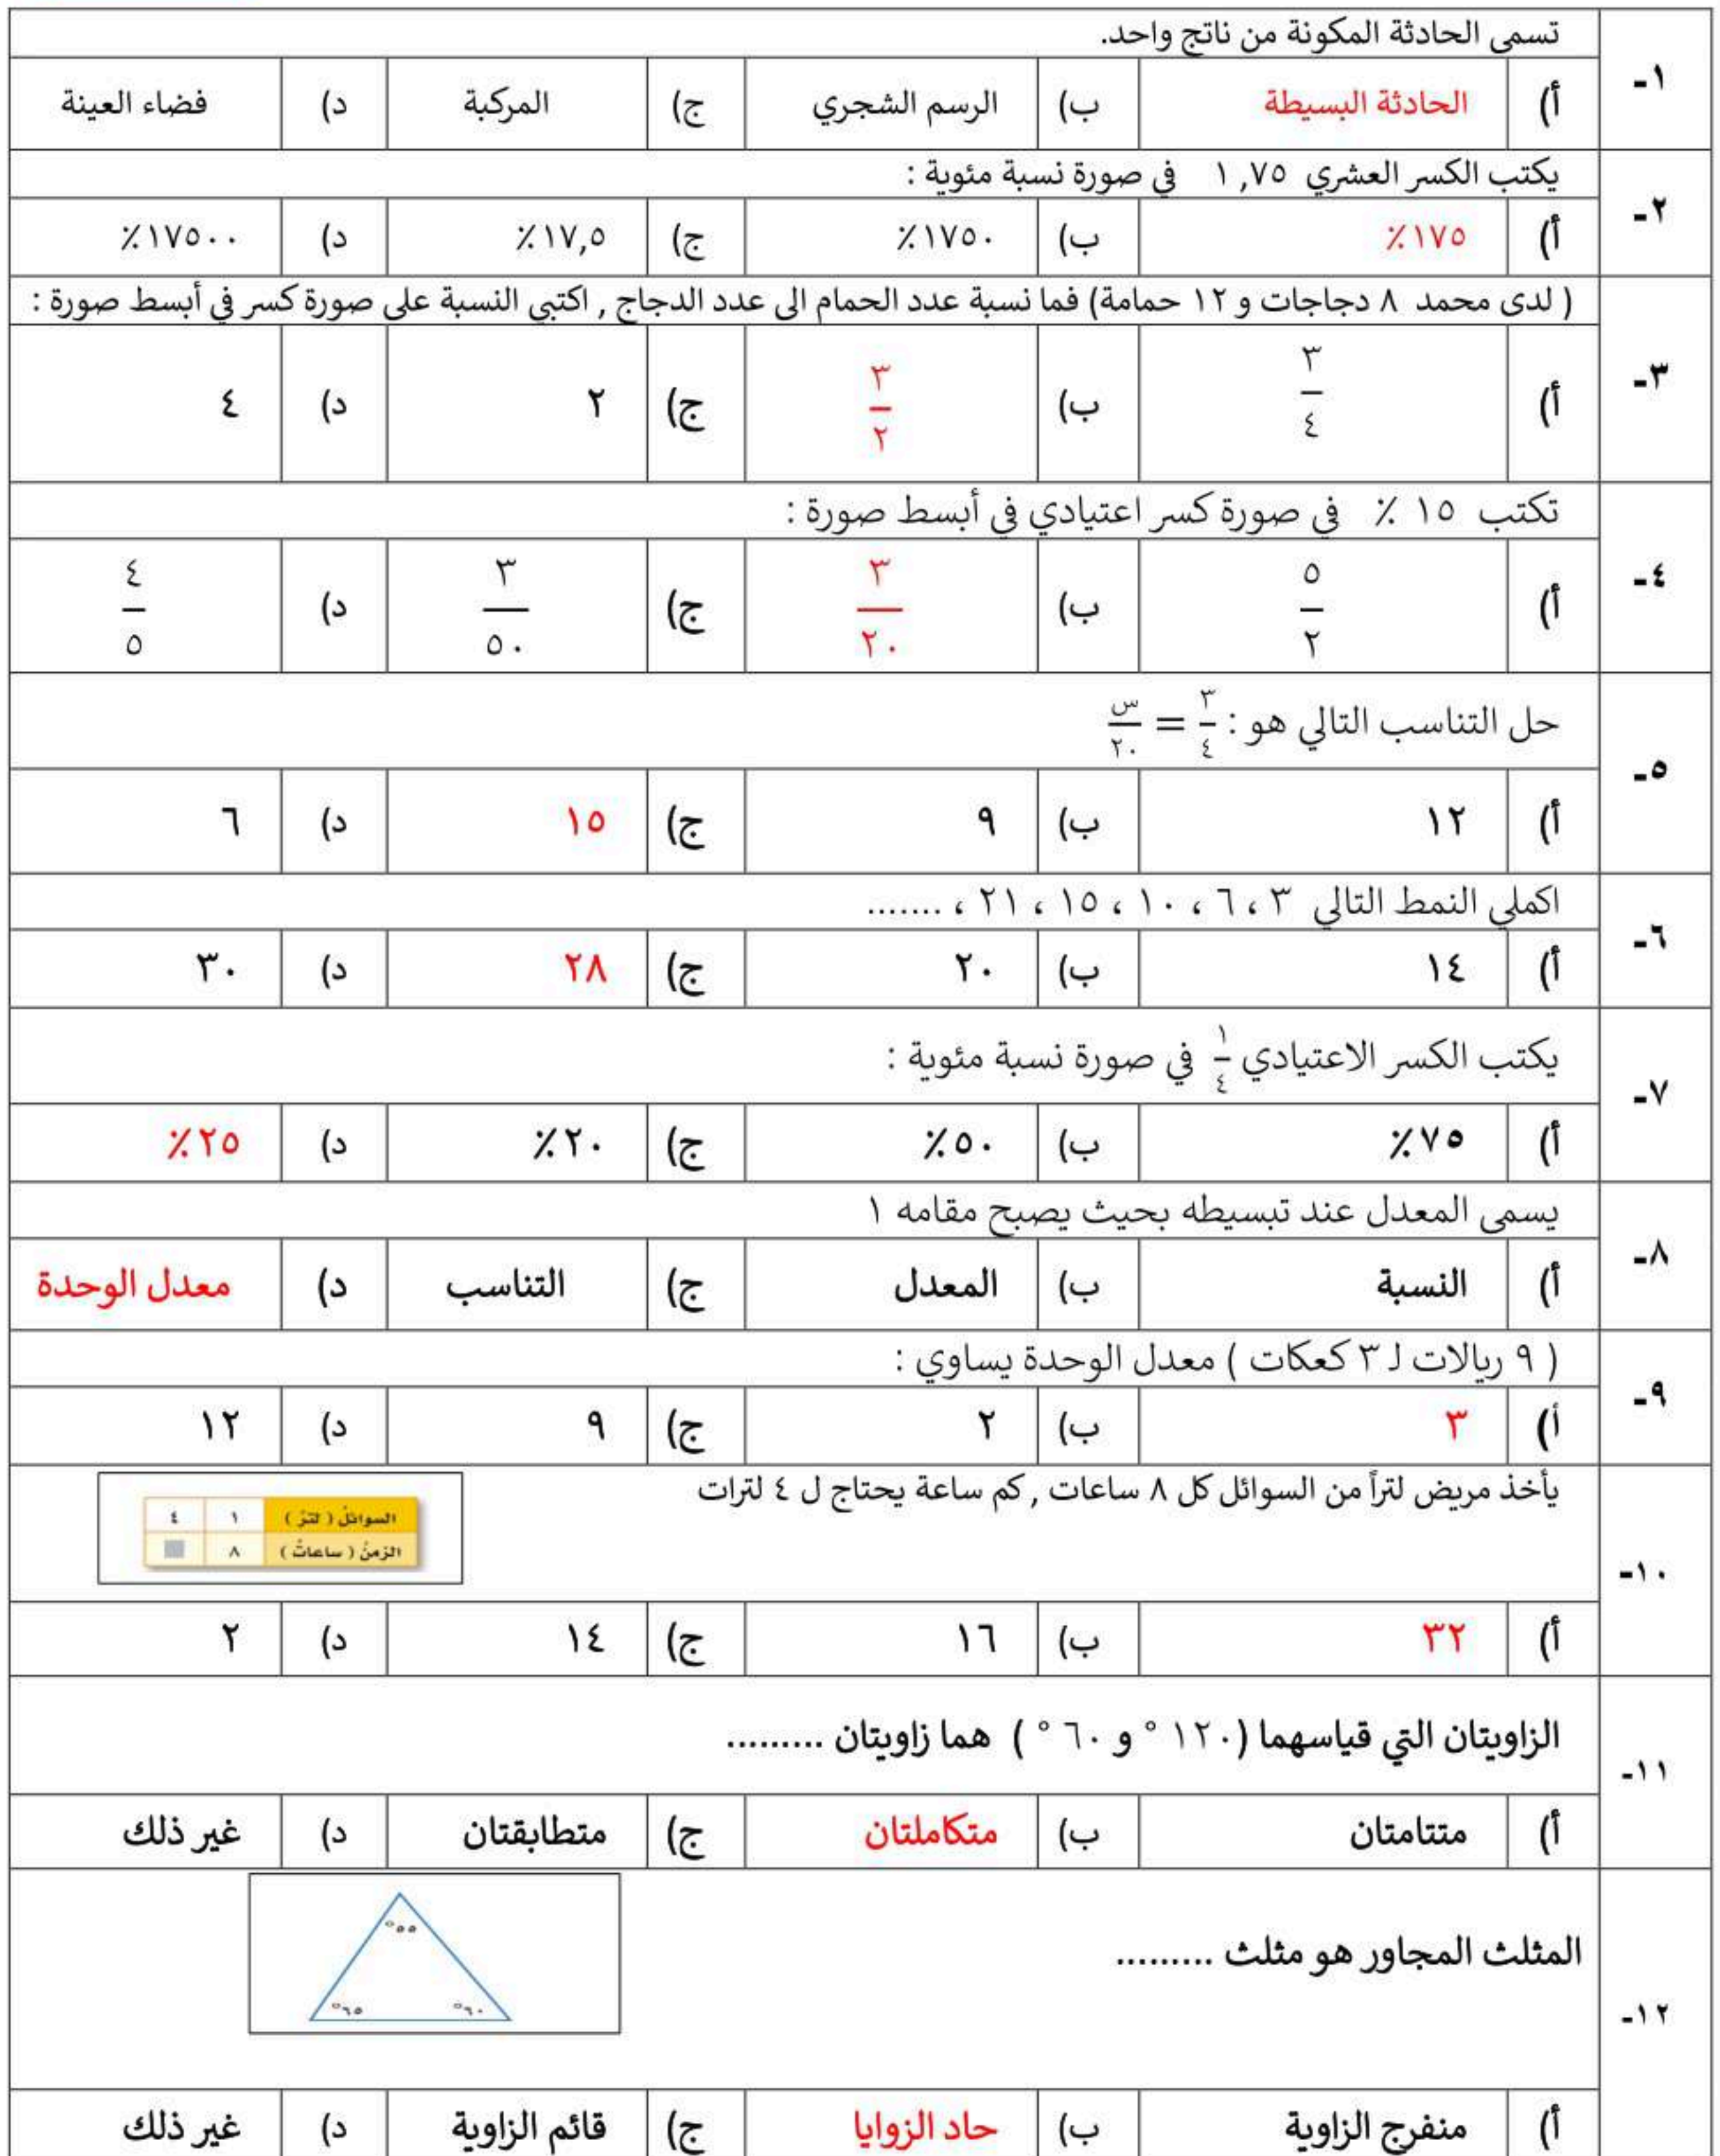 ١- تسمى الحادثة المكونة من ناتج واحد.
أ) الحادثة البسيطة ب) الرسم الشجري ج) المركبة د) فضاء العينة
٢- يكتب الكسر العشري ١,٧٥ في صورة نسبة مئوية :
أ) ١٧٥٪ ب) ١٧٥٠٪ ج) ١٧,٥٪ د) ١٧٥٠٠٪
٣- ( لدى محمد ٨ دجاجات و ١٢ حمامة) فما نسبة عدد الحمام الى عدد الدجاج , اكتبي النسبة على صورة كسر في أبسط صورة :
أ) ٣/٤ ب) ٣/٢ ج) ٢ د) ٤
٤- تكتب ١٥ ٪ في صورة كسر اعتيادي في أبسط صورة :
أ) ٥/٢ ب) ٣/٢٠ ج) ٣/٥٠ د) ٤/٥
٥- حل التناسب التالي هو : ٣/٤ = س/٢٠
أ) ١٢ ب) ٩ ج) ١٥ د) ٦
٦- اكملي النمط التالي ٣ ، ٦ ، ١٠ ، ١٥ ، ٢١ ، .......
أ) ١٤ ب) ٢٠ ج) ٢٨ د) ٣٠
٧- يكتب الكسر الاعتيادي ١/٤ في صورة نسبة مئوية :
أ) ٧٥٪ ب) ٥٠٪ ج) ٢٠٪ د) ٢٥٪
٨- يسمى المعدل عند تبسيطه بحيث يصبح مقامه ١
أ) النسبة ب) المعدل ج) التناسب د) معدل الوحدة
٩- ( ٩ ريالات لـ ٣ كعكات ) معدل الوحدة يساوي :
أ) ٣ ب) ٢ ج) ٩ د) ١٢
١٠- يأخذ مريض لتراً من السوائل كل ٨ ساعات , كم ساعة يحتاج ل ٤ لترات
السوائل ( لتر ) ١ ٤
الزمن ( ساعات ) ٨
أ) ٣٢ ب) ١٦ ج) ١٤ د) ٢
١١- الزاويتان التي قياسهما (١٢٠ ° و ٦٠ ° ) هما زاويتان .........
أ) متتامتان ب) متكاملتان ج) متطابقتان د) غير ذلك
١٢- المثلث المجاور هو مثلث .........
٥٥°
٦٥° ٦٠°
أ) منفرج الزاوية ب) حاد الزوايا ج) قائم الزاوية د) غير ذلك